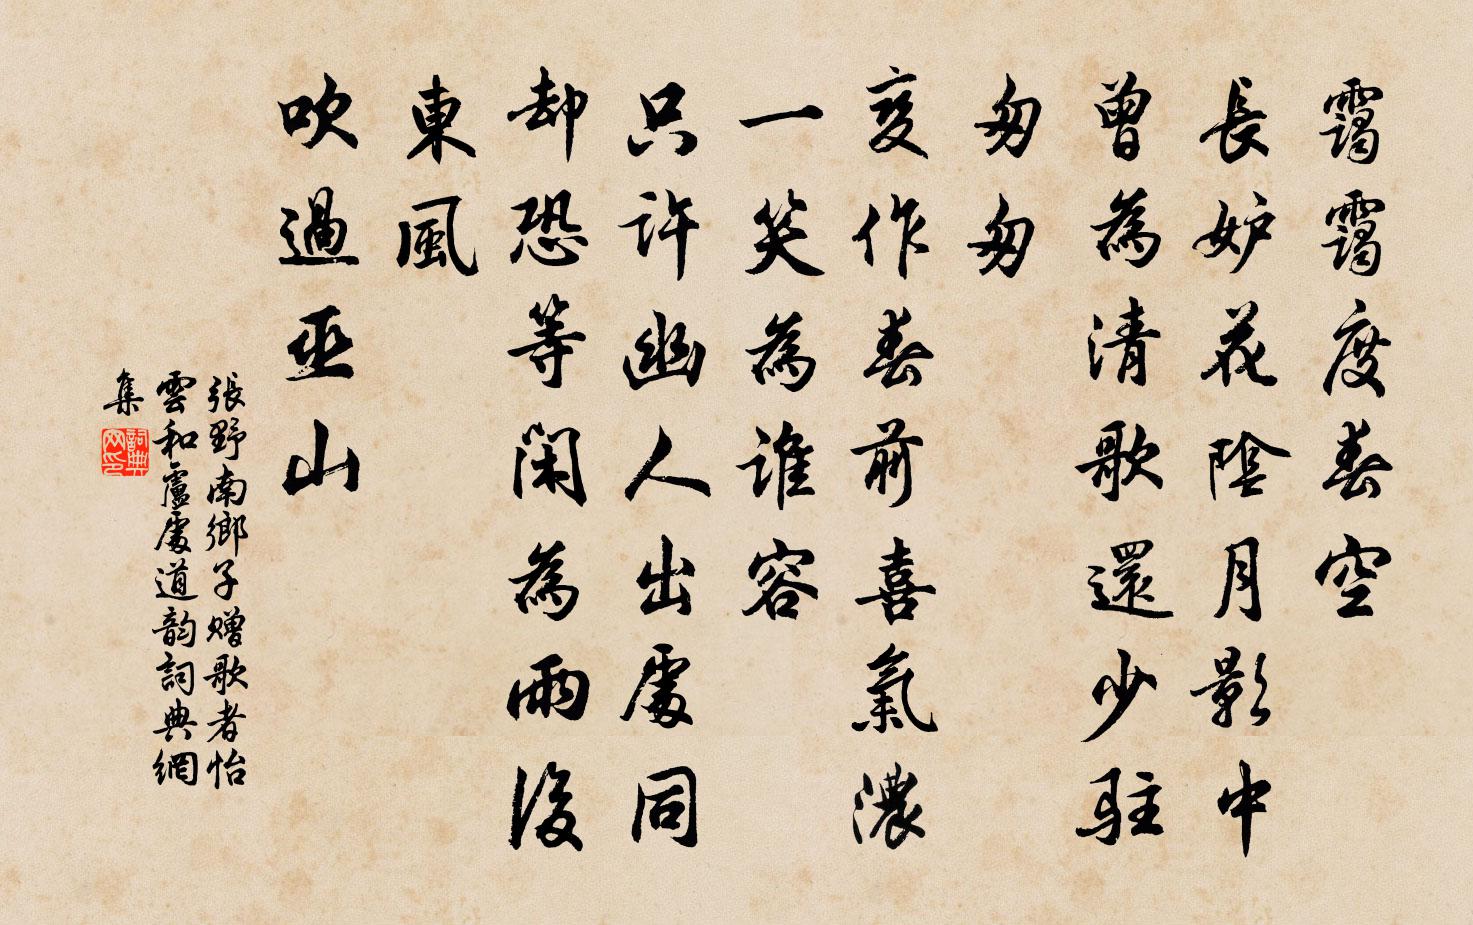 靄靄度春空
長妒花陰月影中
曾為清歌還少駐
匆匆
变作春前喜氣濃
一笑為誰容
只許幽人出處同
却恐等閑為雨後
東風
吹過巫山
張野南鄉子贈歌者怡
雲和盧處道韵詞典網
集
詞典网印